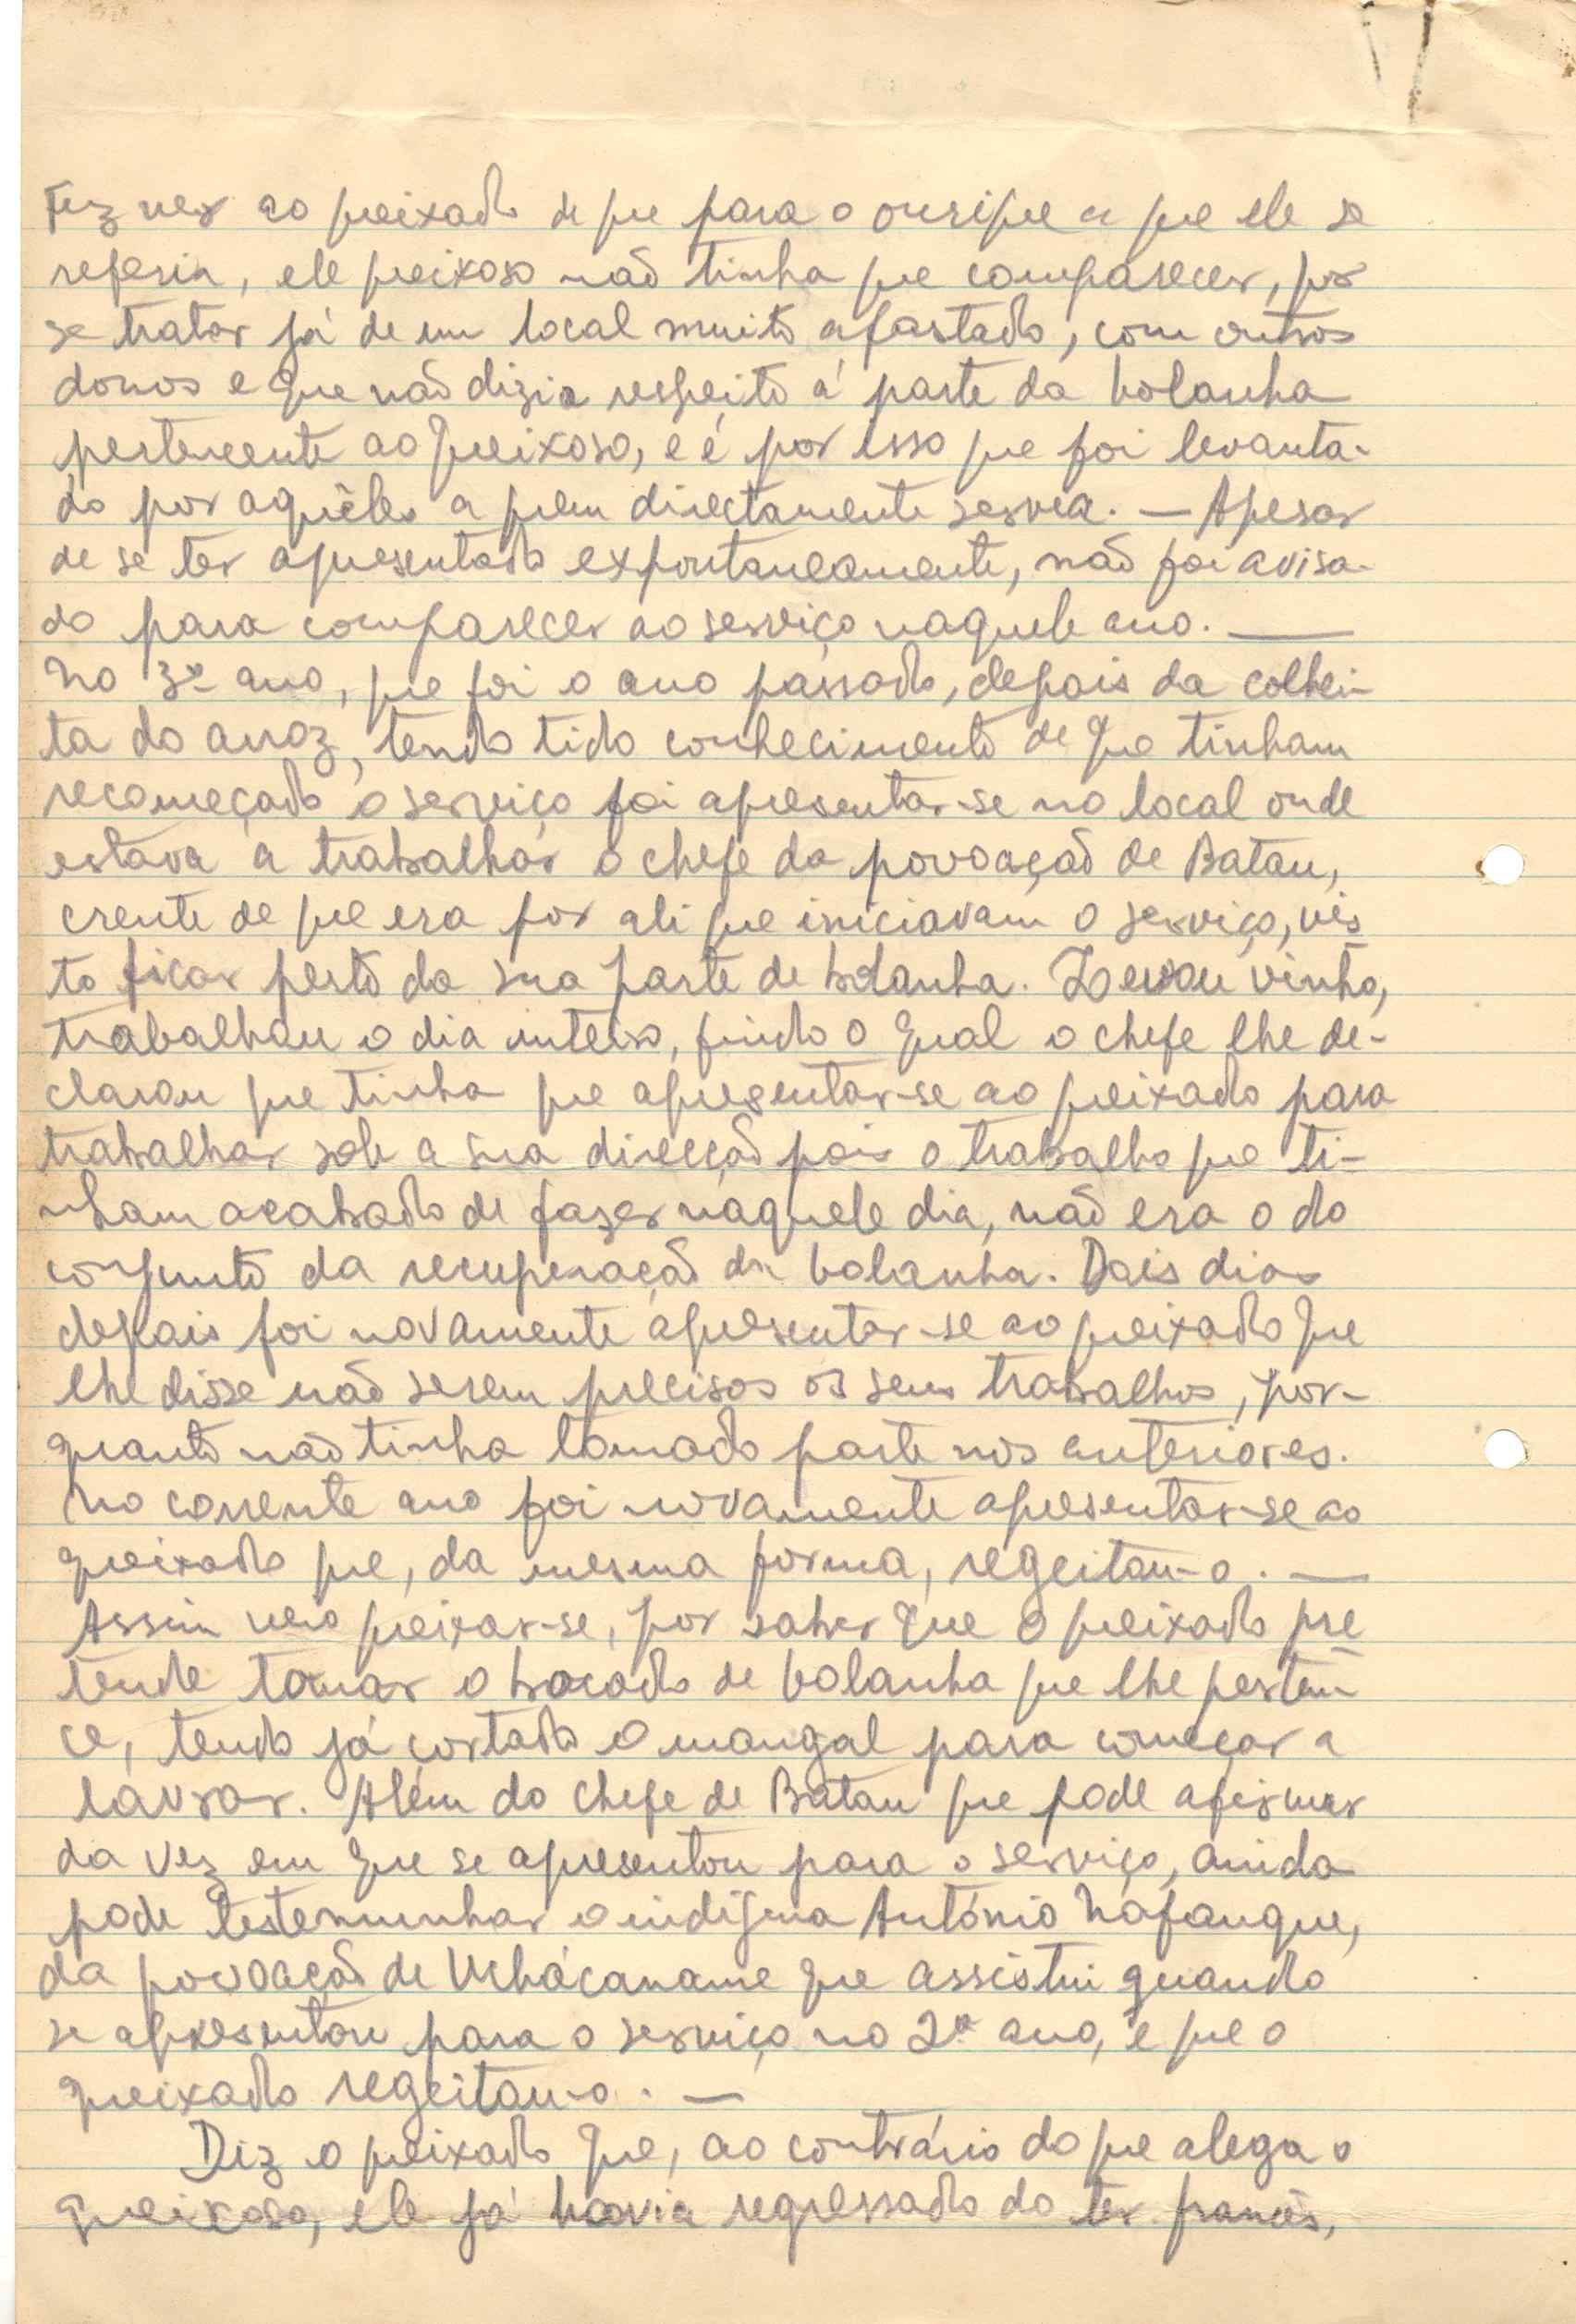 Fez ver ao queixado de que para o ourique a que ele se
referia, ele queixoso não tinha que comparecer, por
se tratar já de um local muito afastado, com outros
donos e que não dizia respeito á parte da bolanha
pertencente ao queixoso, e é por isso que foi levanta-
do por aquêles a quem directamente servia. — Apesar
de se ter apresentado expontaneamente, não foi avisa-
do para comparecer ao serviço naquele ano. —
No 3º ano, que foi o ano passado, depois da colhei-
ta do arroz, tendo tido conhecimento de que tinham
recomeçado o serviço foi apresentar-se no local onde
estava a trabalhar o chefe da povoação de Batau,
crente de que era por ali que iniciavam o serviço, vis
to ficar perto da sua parte de bolanha. Levou vinho,
trabalhou o dia inteiro, findo o qual o chefe lhe de-
clarou que tinha que apresentar-se ao queixado para
trabalhar sob a sua direcção pois o trabalho que ti-
nham acabado de fazer naquele dia, não era o do
conjunto da recuperação da bolanha. Dois dias
depois foi novamente apresentar-se ao queixado que
lhe disse não serem precisos os seus trabalhos, por-
quanto não tinha tomado parte nos anteriores.
No corrente ano foi novamente apresentar-se ao
queixado que, da mesma forma, regeitou-o. —
Assim veio queixar-se, por saber que o queixado pre
tende tomar o bocado de bolanha que lhe perten-
ce, tendo já cortado o mangal para começar a
lavrar. Além do chefe de Batau que pode afirmar
da vez em que se apresentou para o serviço, ainda
pode testemunhar o indígena António Nafanque,
da povoação de Uchácaname que assistiu quando
se apresentou para o serviço no 2º ano, e que o
queixado regeitou-o. —
Diz o queixado que, ao contrário do que alega o
queixoso, ele já havia regressado do ter. francês,